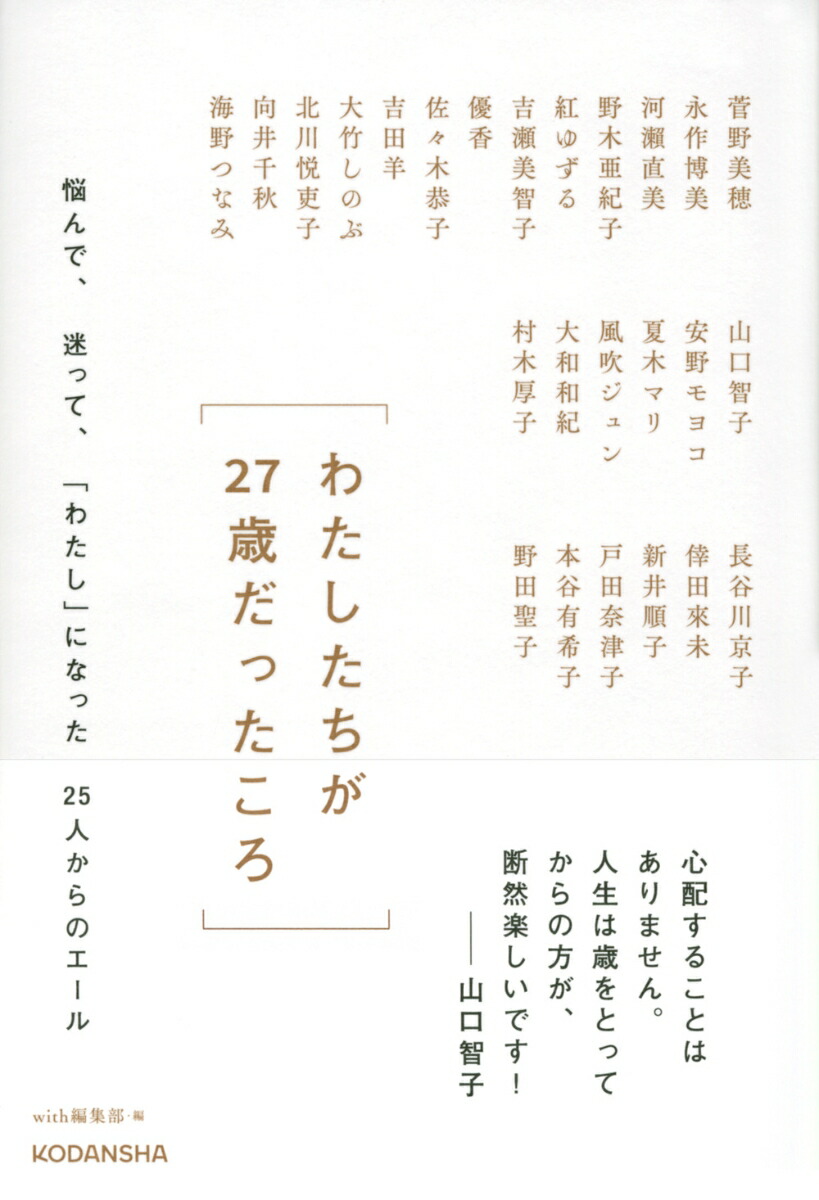 菅野美穂
永作博美
河瀨直美
野木亜紀子
紅ゆずる
吉瀬美智子
優香
佐々木恭子
吉田羊
大竹しのぶ
北川悦吏子
向井千秋
海野つなみ
山口智子
安野モヨコ
夏木マリ
風吹ジュン
大和和紀
村木厚子
長谷川京子
倖田來未
新井順子
戸田奈津子
本谷有希子
野田聖子
わたしたちが
27歳だったころ
悩んで、迷って、「わたし」になった 25人からのエール
心配することは
ありません。
人生は歳をとって
からの方が、
断然楽しいです!
──山口智子
with編集部・編
KODANSHA